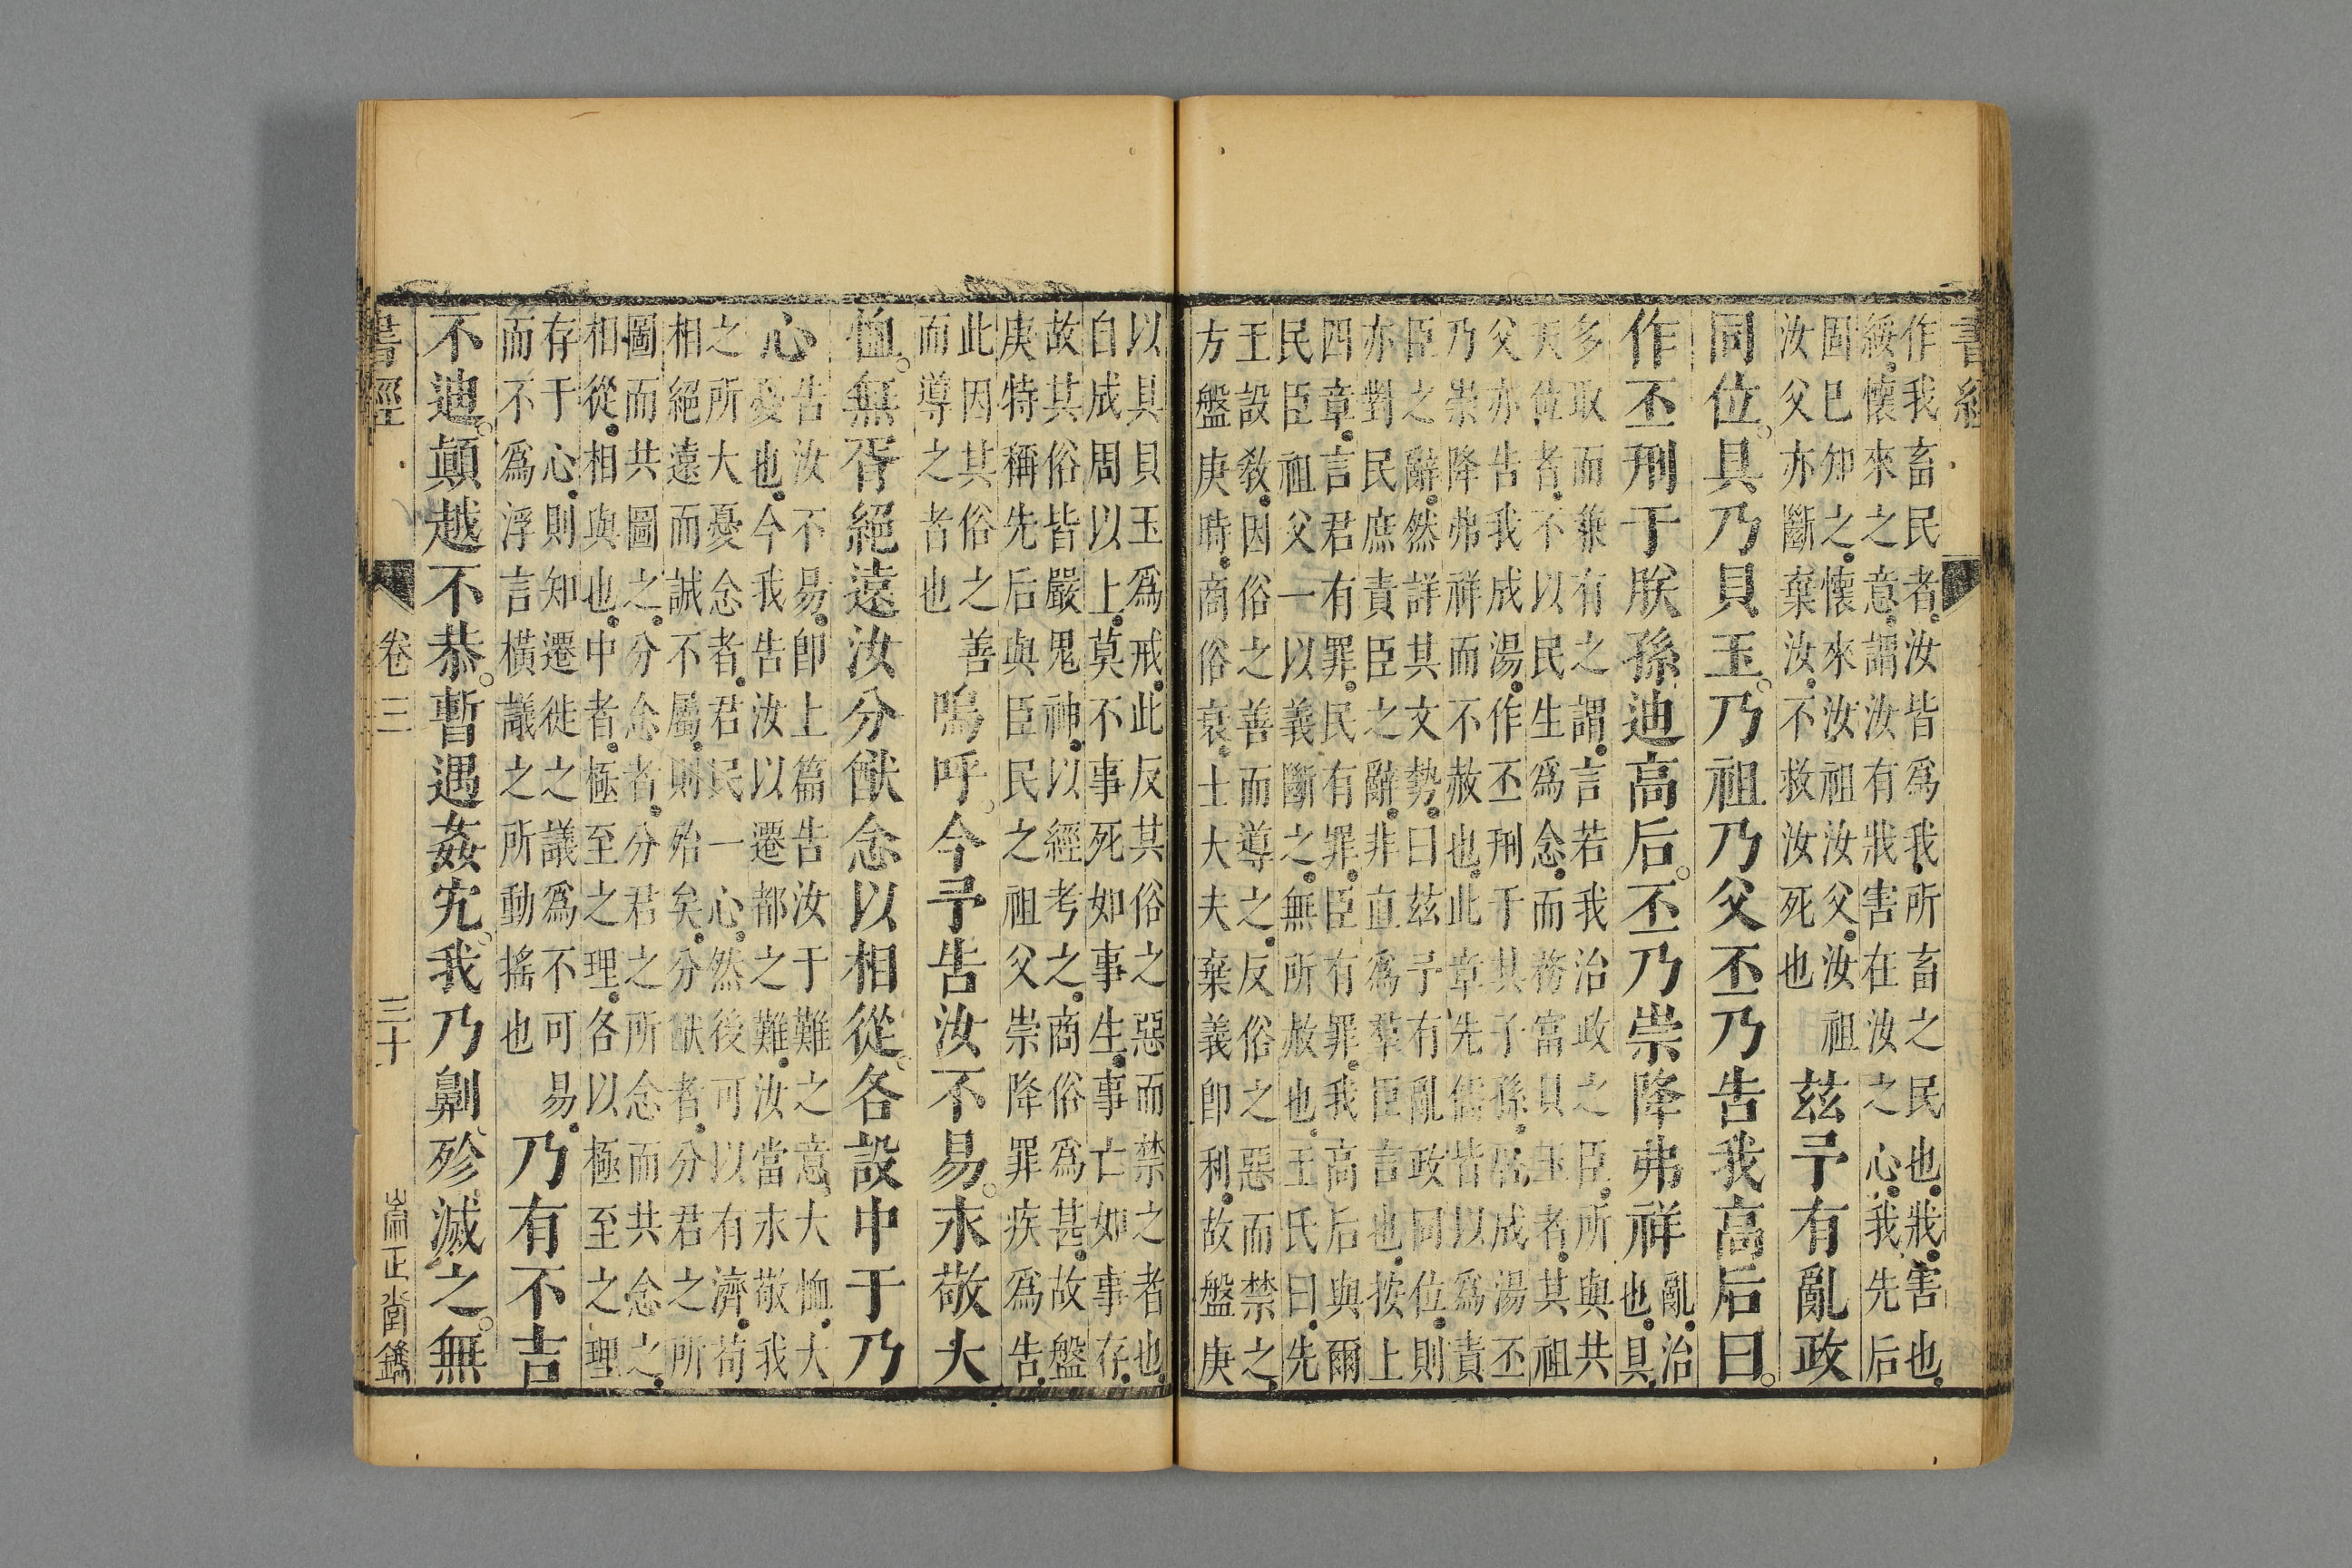 書經
作我畜民者汝皆爲我所畜之民也戕害也
綏懷來之意謂汝有戕害在汝之心我先后
固已知之懷來汝祖汝父汝祖
汝父亦斷棄汝不救汝死也
茲予有亂政
同位具乃貝玉乃祖乃父丕乃告我高后曰
作丕刑于朕孫迪高后丕乃崇降弗祥
亂治
也具
多取而兼有之謂言若我治政之臣所與共
天位者不以民生爲念而務富貝玉者其祖
父亦告我成湯作丕刑于其子孫啓成湯丕
乃崇降弗祥而不赦也此章先儒皆以爲責
臣之辭然詳其文勢曰茲予有亂政同位則
亦對民庶責臣之辭非直爲羣臣言也按上
四章言君有罪民有罪臣有罪我高后與爾
民臣祖父一以義斷之無所赦也王氏曰先
王設敎因俗之善而導之反俗之惡而禁之
方盤庚時商俗衰士大夫棄義卽利故盤庚
以具貝玉爲戒此反其俗之惡而禁之者也
自成周以上莫不事死如事生事亡如事存
故其俗皆嚴鬼神以經考之商俗爲甚故盤
庚特稱先后與臣民之祖父崇降罪疾爲告
此因其俗之善
而導之者也
嗚呼今予告汝不易永敬大
恤無胥絕遠汝分猷念以相從各設中于乃
心
告汝不易卽上篇告汝于難之意大恤大
憂也今我告汝以遷都之難汝當永敬我
之所大憂念者君民一心然後可以有濟苟
相絕遠而誠不屬則殆矣分猷者分君之所
圖而共圖之分念者分君之所念而共念之
相從相與也中者極至之理各以極至之理
存于心則知遷徙之議爲不可易
而不爲浮言橫議之所動搖也
乃有不吉
不迪顚越不恭暫遇姦宄我乃劓殄滅之無
書經 卷三 三十 崙正堂鐫